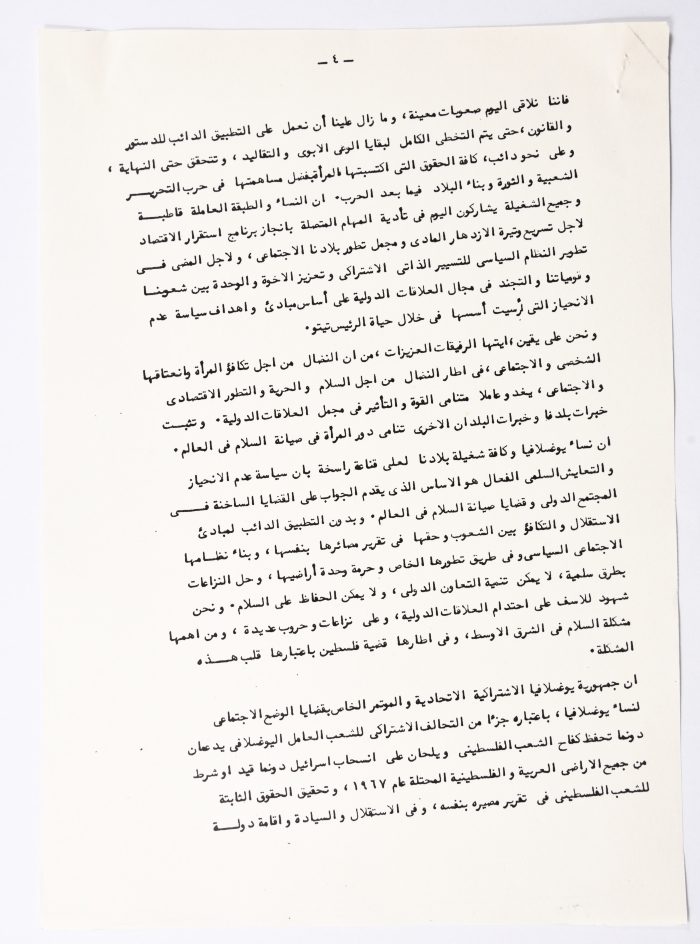 ـ ٤ ـ
فاننا نلاقى اليوم صعوبات معينة، وما زال علينا أن نعمل على التطبيق الدائب للدستور
والقانون، حتى يتم التخطى الكامل لبقايا الوعى الابوى والتقاليد، وتتحقق حتى النهاية،
وعلى نحو دائب، كافة الحقوق التى اكتسبتها المرأة بفضل مساهمتها فى حرب التحريـــر
الشعبية والثورة وبناء البلاد فيما بعد الحرب. ان النساء والطبقة العاملة قاطبـــة
وجميع الشغيلة يشاركون اليوم فى تأدية المهام المتصلة بانجاز برنامج استقرار الاقتصاد
لاجل تسريع وتيرة الازدهار المادى ومجمل تطور بلادنا الاجتماعى، ولاجل المضى فـــى
تطوير النظام السياسى للتسيير الذاتى الاشتراكى وتعزيز الاخوة والوحدة بين شعوبنـــا
وقومياتنا والتجند فى مجال العلاقات الدولية على أساس مبادئ واهداف سياسة عدم
الانحياز التى أرسيت أسسها فى خلال حياة الرئيس تيتو.
ونحن على يقين، ايتها الرفيقات العزيزات، من ان النضال من اجل تكافؤ المرأة وانعتاقها
الشخصى والاجتماعى، فى اطار النضال من اجل السلام والحرية والتطور الاقتصادى
والاجتماعى، يغدو عاملا متنامى القوة والتأثير فى مجمل العلاقات الدولية. وتثبـــت
خبرات بلدنا وخبرات البلدان الاخرى تنامى دور المرأة فى صيانة السلام فى العالم.
ان نساء يوغسلافيا وكافة شغيلة بلادنا لعلى قناعة راسخة بان سياسة عدم الانحياز
والتعايش السلمى الفعال هو الاساس الذى يقدم الجواب على القضايا الساخنة فـــى
المجتمع الدولى وقضايا صيانة السلام فى العالم. وبدون التطبيق الدائب لمبادئ
الاستقلال والتكافؤ بين الشعوب وحقها فى تقرير مصائرها بنفسها، وبناء نظـامها
الاجتماعى السياسى وفى طريق تطورها الخاص وحرمة وحدة أراضيها، وحل النزاعات
بطرق سلمية، لا يمكن تنمية التعاون الدولى، ولا يمكن الحفاظ على السلام. ونحن
شهود للاسف على احتدام العلاقات الدولية، وعلى نزاعات وحروب عديدة، ومن اهمها
مشكلة السلام فى الشرق الاوسط، وفى اطارها قضية فلسطين باعتبارها قلب هـــذه
المشكلة.
ان جمهورية يوغسلافيا الاشتراكية الاتحادية والموتمر الخاص بقضايا الوضع الاجتماعى
لنساء يوغسلافيا، باعتباره جزءا من التحالف الاشتراكى للشعب العامل اليوغسلافى يدعمان
دونما تحفظ كفاح الشعب الفلسطينى ويلحان على انسحاب اسرائيل دونما قيد او شرط
من جميع الاراضى العربية والفلسطينية المحتلة عام ١٩٦٧، وتحقيق الحقوق الثابتة
للشعب الفلسطينى فى تقرير مصيره بنفسه، وفى الاستقلال والسيادة واقامة دولـــة